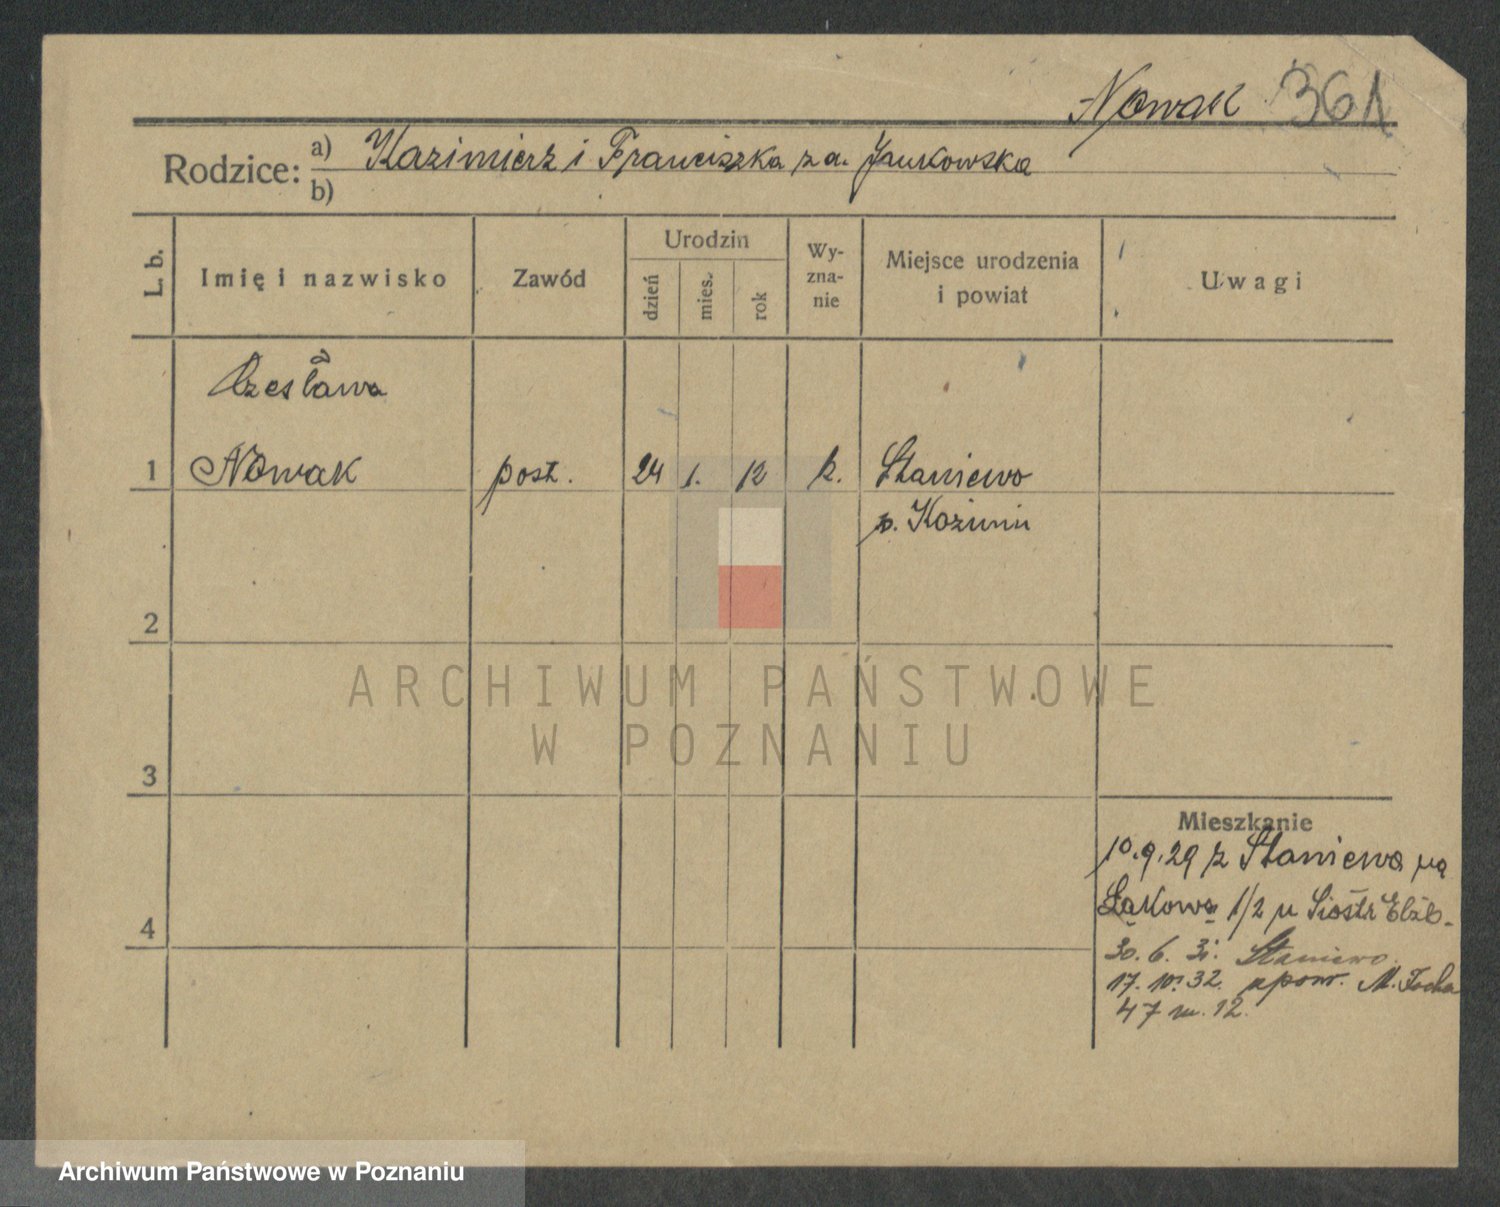 Nowak 361
Rodzice: a) Kazimierz i Franciszka z d. Jankowska
b)
L. b.
Imię i nazwisko
Zawód
Urodzin
dzień
mies.
rok
Wy-
zna-
nie
Miejsce urodzenia
i powiat
Uwagi
Czesława
1 Nowak post. 24 1. 12 k. Staniewo
p. Koźmin
2
3
4
Mieszkanie
10.9.29 z Staniewa na
Łąkową 1/2 u Sióstr Elżb.
30. 6. 31. Staniewo
17. 10. 32. spow. M. Focha
47 m. 12.
ARCHIWUM PAŃSTWOWE
W POZNANIU
Archiwum Państwowe w Poznaniu